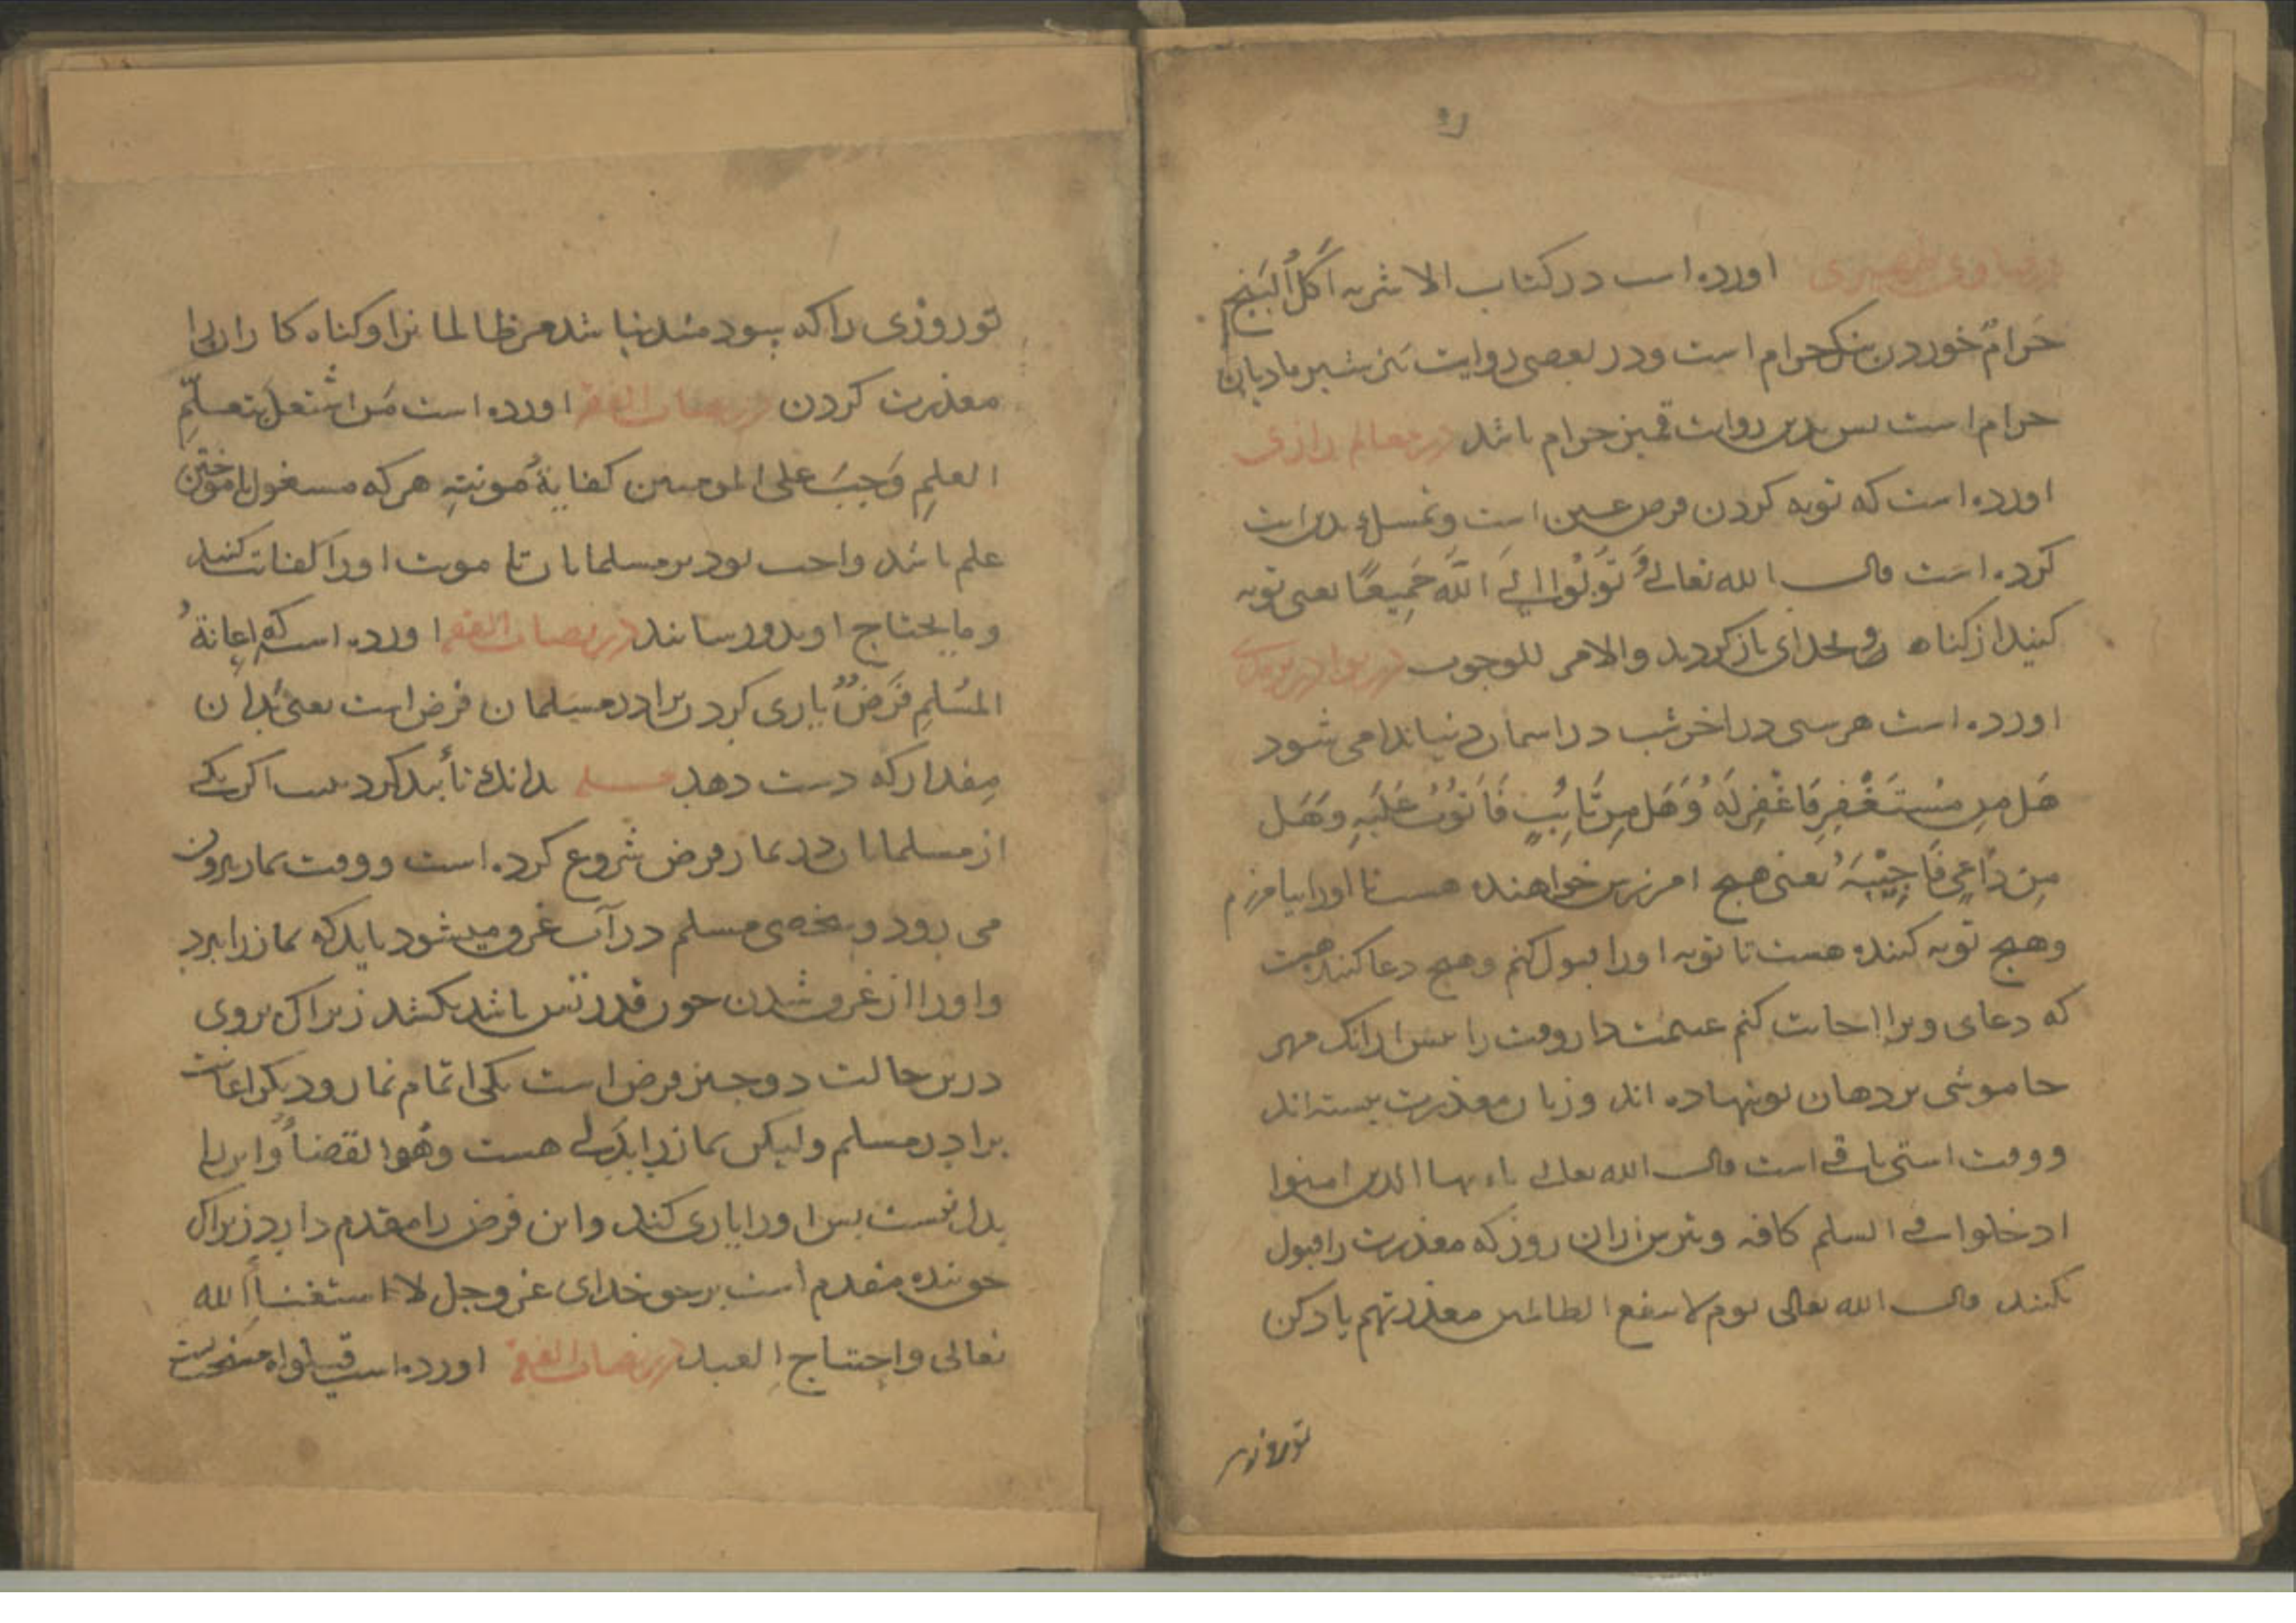 اورده است در کتاب الاشربه اَکلُ البَنج
حَرامٌ خوردن بنک حرام است ودر بعضی روایت شیر مادیان
حرام است بس بدین روایت قمیز حرام باشد در معالم رازی
اورده است که توبه کردن فرض عین است وتمسک بدین ایت
کرده است قال الله تعالی وَ تُوبُوا اِلیَ اللّهِ جَمِیعًا یعنی توبه
کنید از کناه و بخدای باز کردید والامر للوجوب در نوادر
اورده است هر شبی در اخر شب در اسمان دنیا ندا می شود
هَل مِن مُستَغفِرٍ فَاَغفِرلَهُ وَهَل مِن تَائِبٍ فَاَتُوبُ عَلَیهِ وَهَل
مِن دَاعِیٍ فَاُجِیبَهُ یعنی هیچ امرزش خواهنده هست تا اورا بیامرزم
وهیچ توبه کننده هست تا توبه اورا قبول کنم وهیچ دعا کننده هست
که دعای ویرا اجابت کنم غنیمت دار وقت را بیش ازانک مهر
خاموشی بر دهان تو نهاده اند وزبان معذرت بسته اند
ووقت است باقی است قال الله تعالی یاءیها الذین امنوا
ادخلوا فی السلم کافه وبترس ازان روز که معذرت را قبول
نکنند قال الله تعالی یوم لا ینفع الظالمین معذرتهم یاد کن
تو روزی
تو روزی را که سودمند نباشد مر ظالمانرا وکناه کارانرا
معذرت کردن در نصاب الفقه اورده است مَن اشتَغَلَ بتعلّمِ
العلمِ وَجَبَ علی المومنین کفایةُ مُونتِهِ هر که مشغول باموختن
علم باشد واجب بود بر مسلمانان تا مونت اورا کفایت کنند
وما یحتاج او بدو رسانند در نصاب الفقه اورده است که اِعانةُ
المُسلِمِ فَرَضٌ یاری کردن برادر مسلمان فرض است یعنی بدان
مقدار که دست دهد مسئله بدانک تأیید کردست اکر یکی
از مسلمانان در نماز فرض شروع کرده است ووقت نماز بیرون
می رود و شخصی مسلم در آب غرق میشود باید که نماز را ببرد
واورا از غرق شدن چون قدرتش باشد بکشد زیراک بروی
درین حالت دو چیز فرض است یکی اتمام نماز ودیکر اعانت
برادر مسلم ولیکن نماز را بَدَلی هست وهُو القضاُ واین را
بدل نیست بس اورا یاری کند واین فرض را مقدم دارد زیراک
حق بنده مقدم است بر حق خدای عز وجل لا استغناءِ الله
تعالی واحتیاجِ العبد در نصاب الفقه اورده است